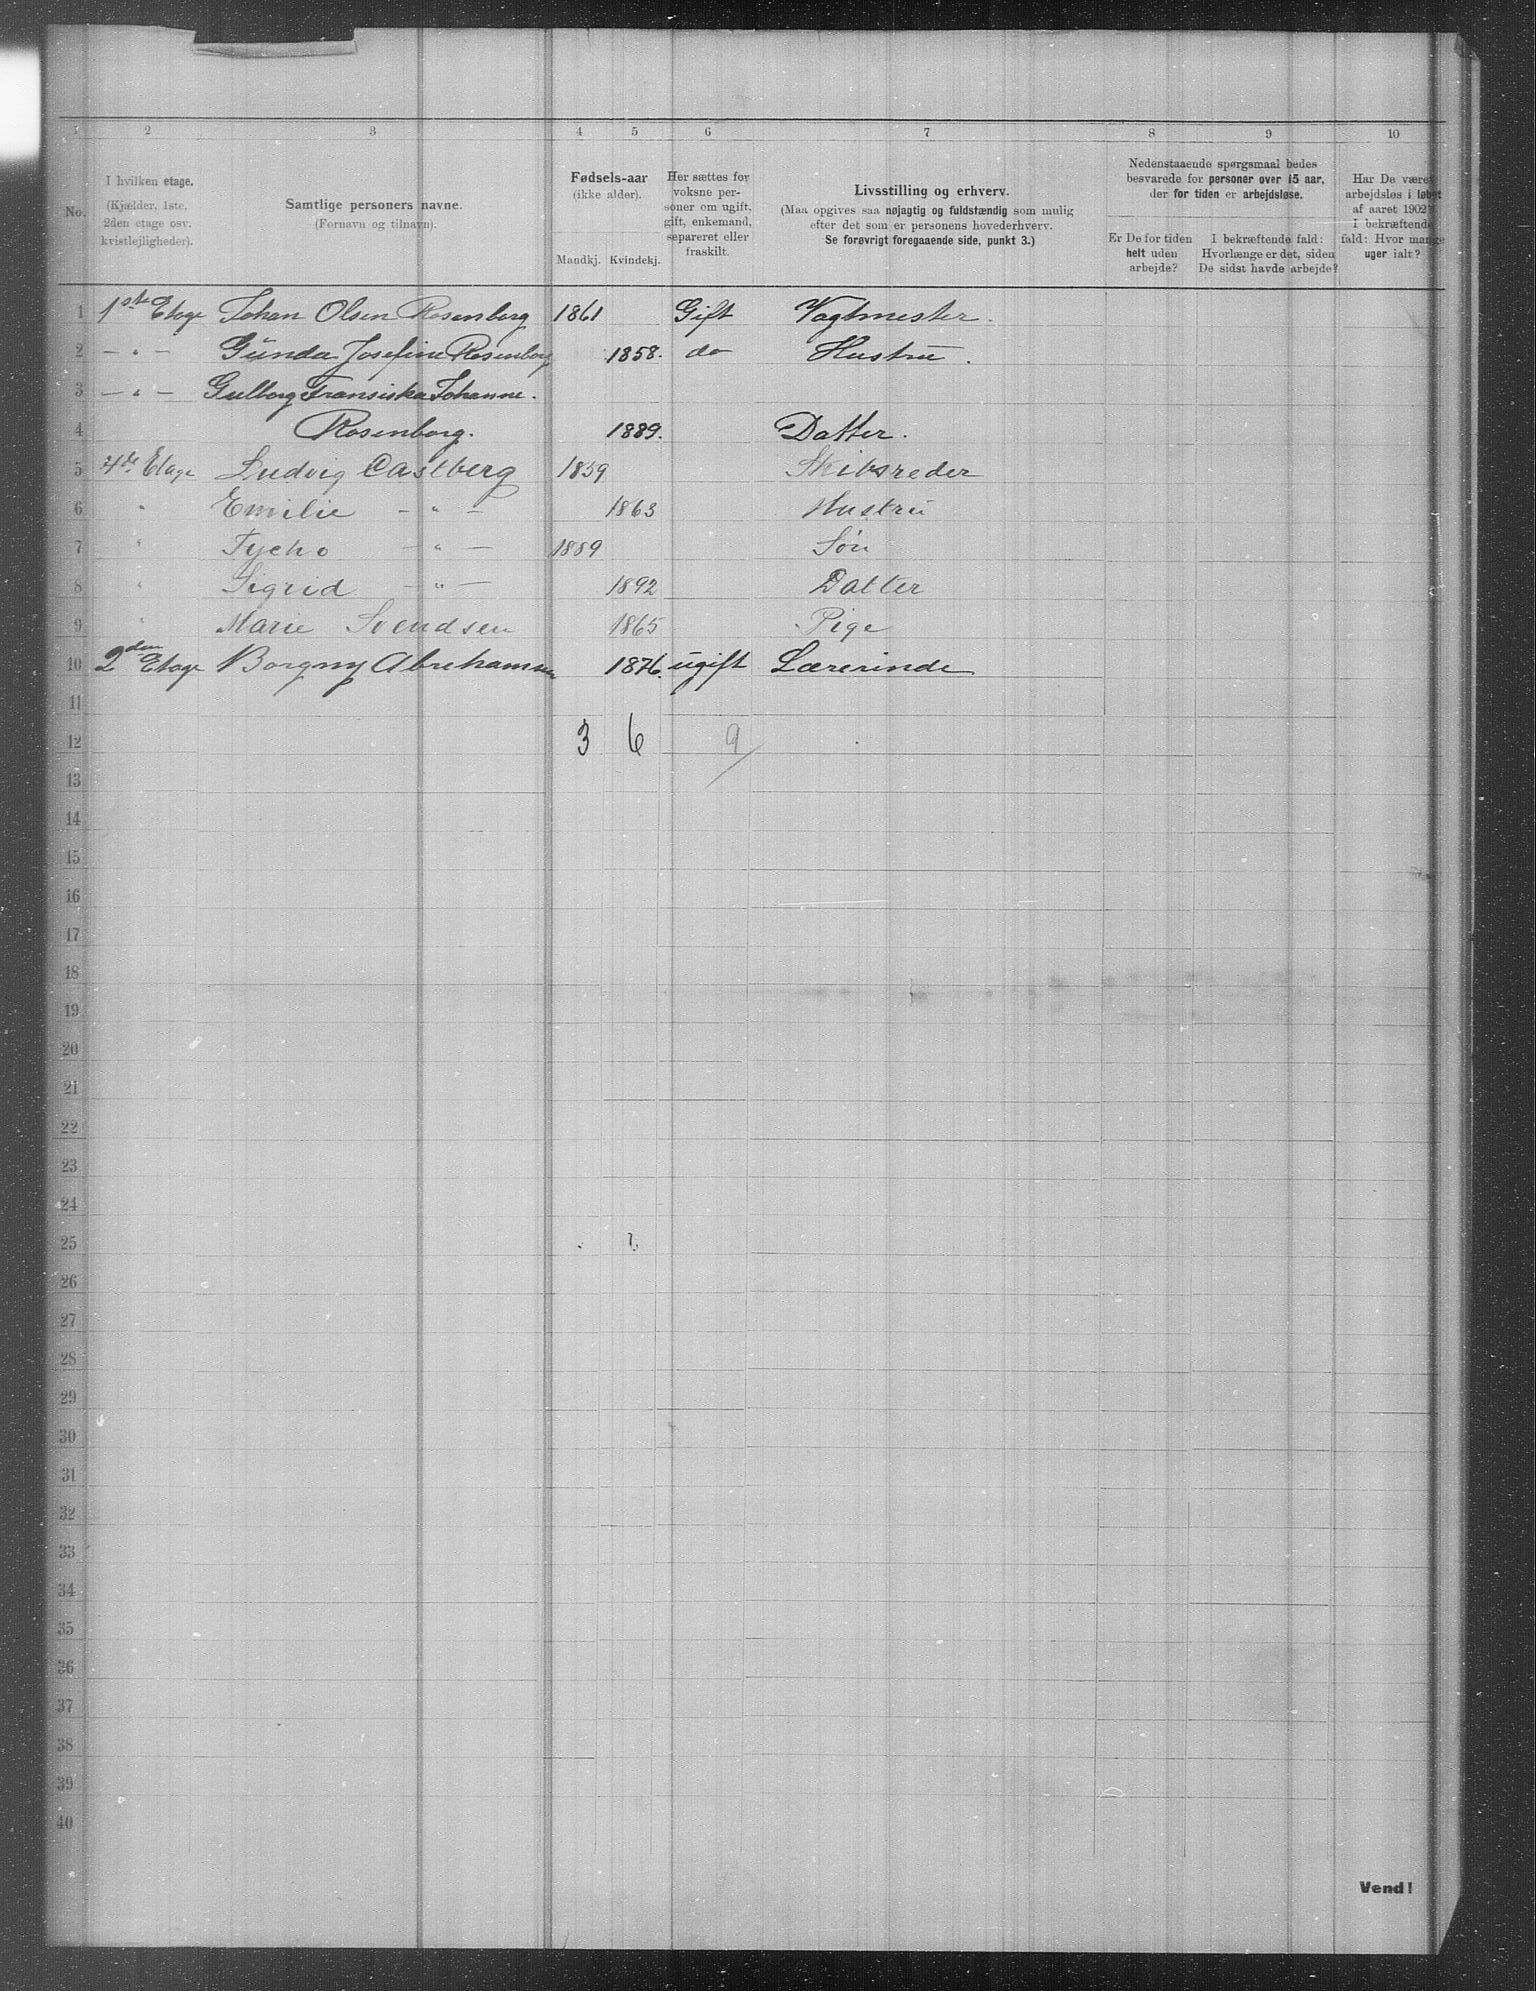 1 2 3 4 5 6 7 8 9 10
No.
I hvilken etage.
(Kjælder, 1ste,
2den etage osv.
kvistlejligheder).
Samtlige personers navne.
(Fornavn og tilnavn).
Fødsels-aar
(ikke alder).
Mandkj. Kvindekj.
Her sættes for
voksne per-
soner om ugift,
gift, enkemand,
separeret eller
fraskilt.
Livsstilling og erhverv.
(Maa opgives saa nøjagtig og fuldstændig som mulig
efter det som er personens hovederhverv.
Se forøvrigt foregaaende side, punkt 3.)
Nedenstaaende spørgsmaal bedes
besvarede for personer over 15 aar,
der for tiden er arbejdsløse.
Er De for tiden
helt uden
arbejde?
I bekræftende fald:
Hvorlænge er det, siden
De sidst havde arbejde?
Har De været
arbejdsløs i løbet
af aaret 1902?
I bekræftende
fald: Hvor mange
uger ialt?
1 1ste Etage Johan Olsen Rosenborg 1861 Gift Vagtmester.
2 — " — Gunda Josefine Rosenborg 1858. do Hustru.
3 — " — Gulborg Fransiska Johanne.
4 Rosenborg. 1889. Datter.
5 4de Etage Ludvig Castberg 1859 Skibsreder
6 " Emilie — " — 1863 Hustru
7 " Tycho — " — 1889 Søn
8 " Sigrid — " — 1892 Datter
9 " Marie Svendsen 1865 Pige
10 2den Etage Borgny Abrehamsen 1876. ugift Lærerinde
11
12 3 6 9
13
14
15
16
17
18
19
20
21
22
23
24
25
26
27
28
29
30
31
32
33
34
35
36
37
38
39
40
Vend!